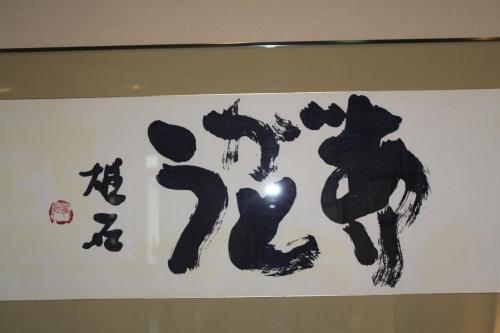 ありがとう
雄石